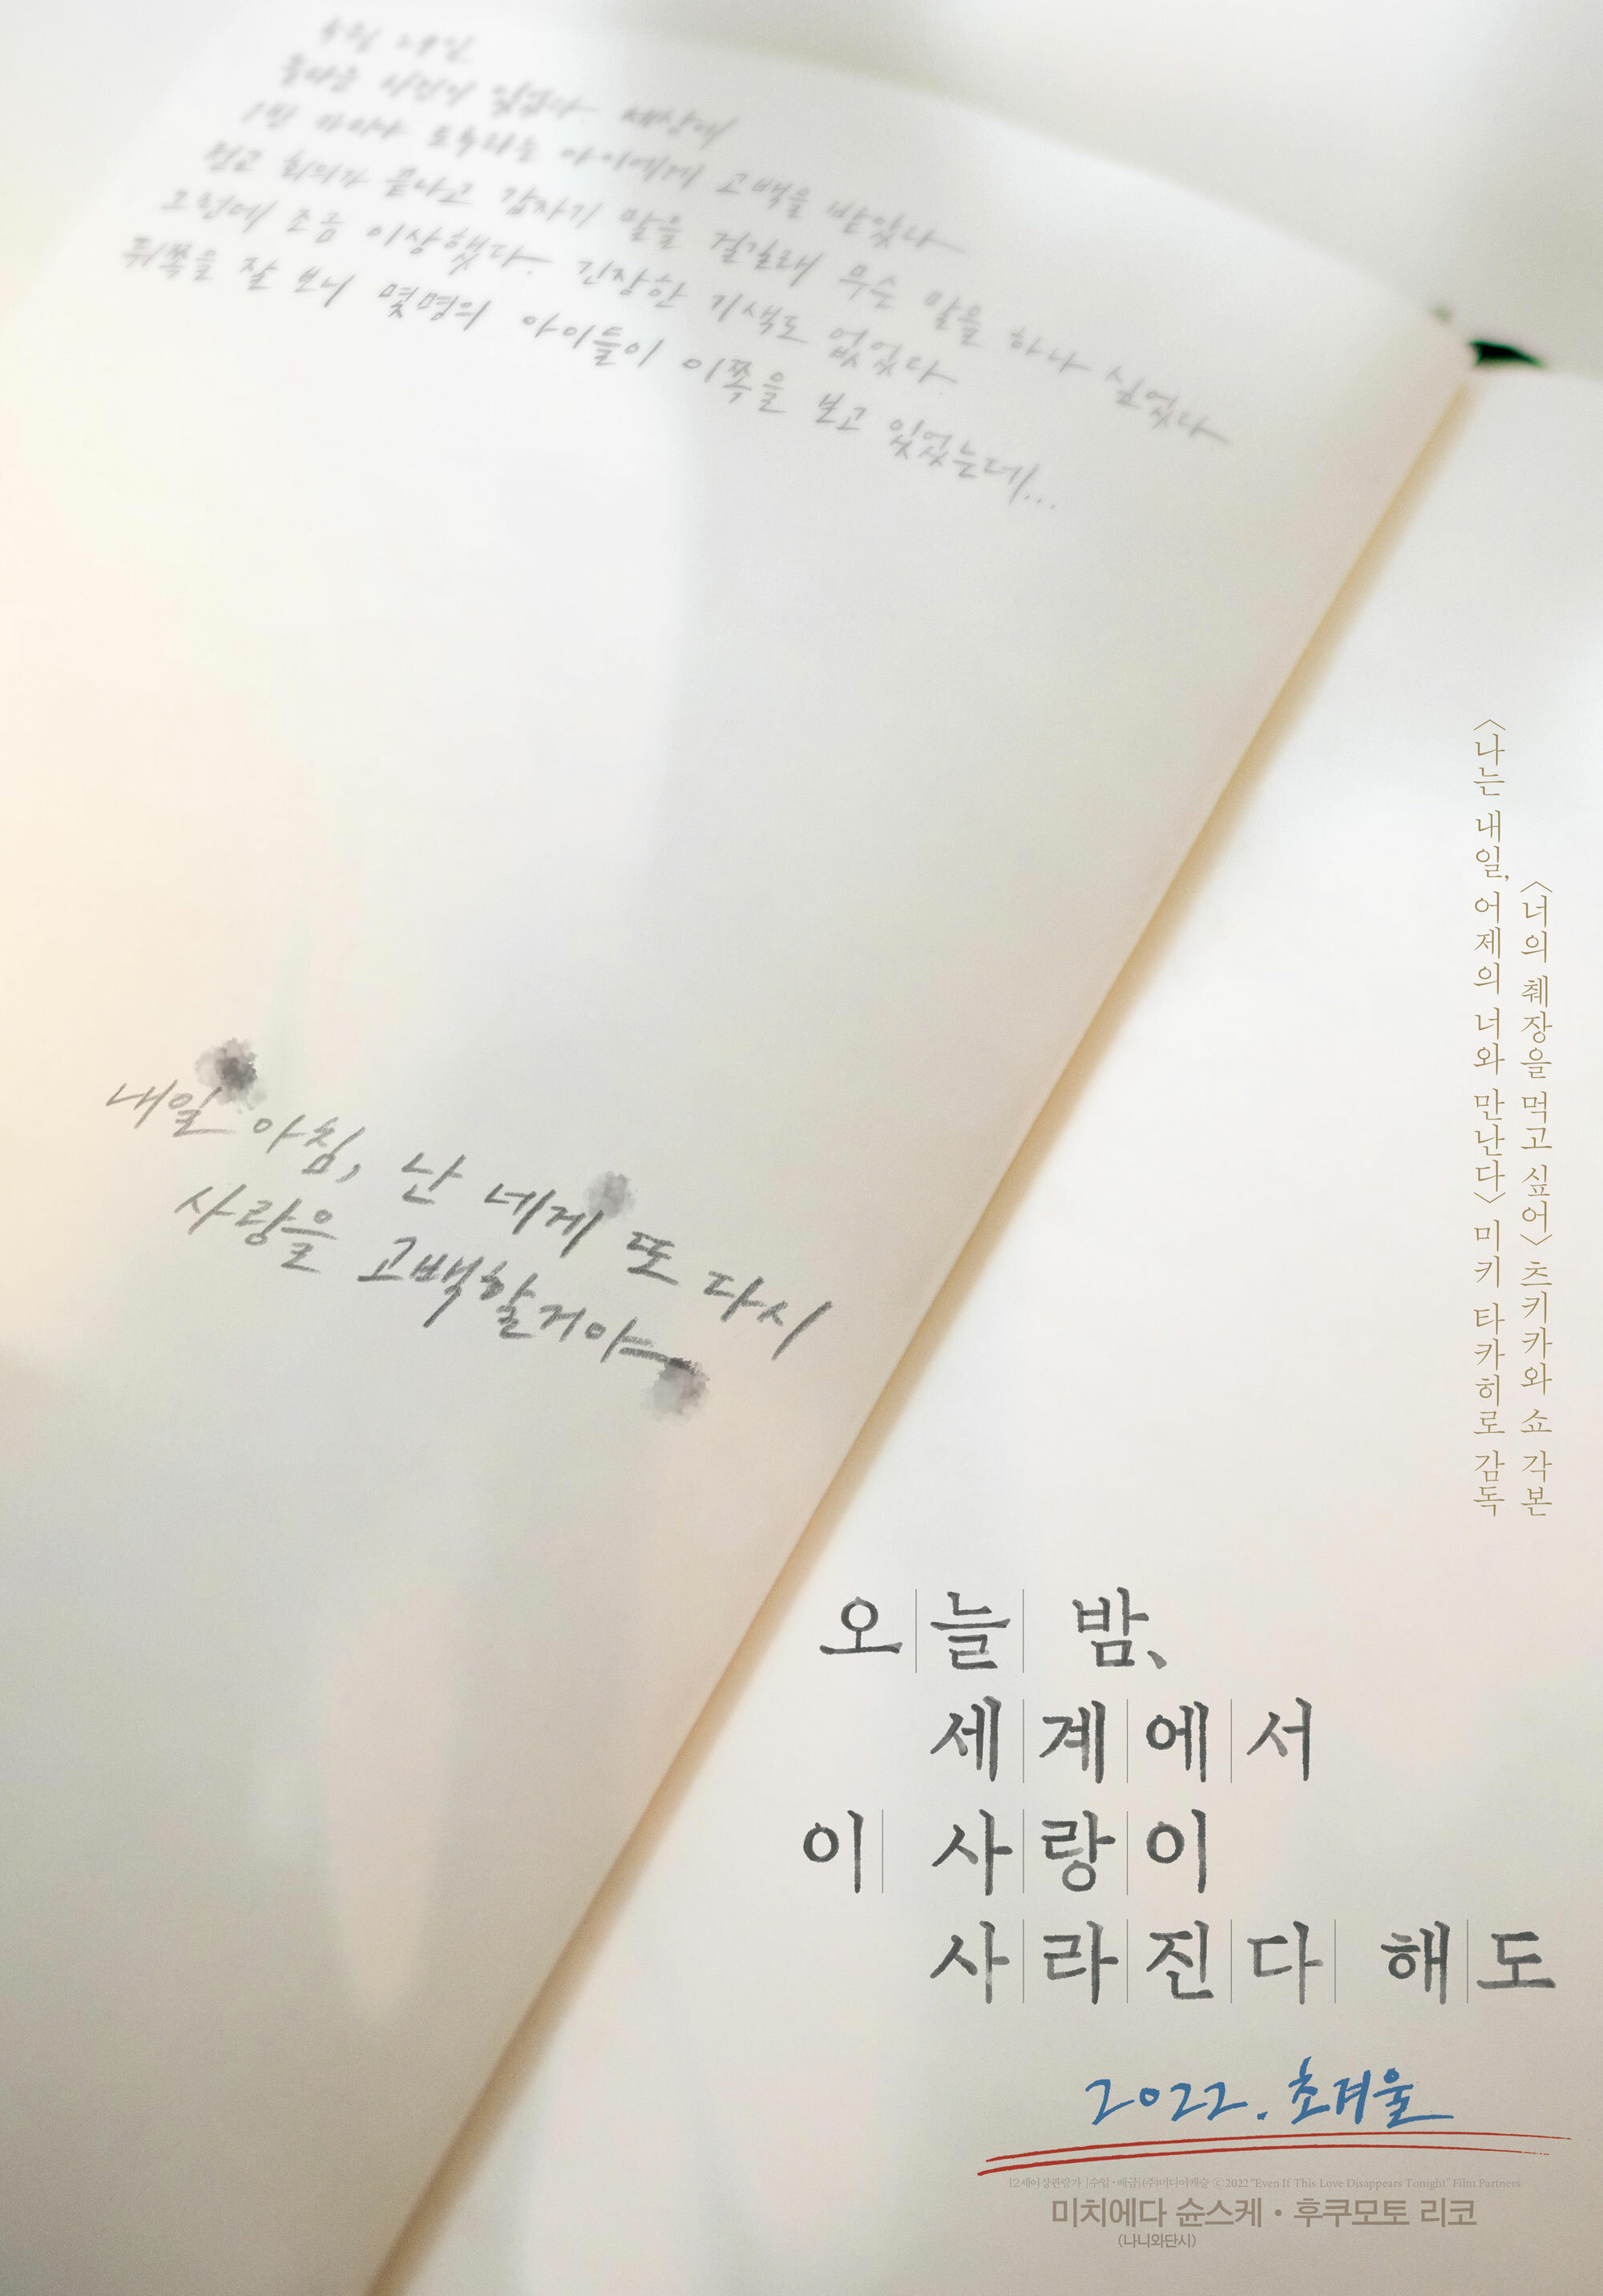 세상에
1반 카미야 토루라는 아이에게 고백을 받았다
점고 회의가 끝나고 갑자기 말을 걸길래 무슨 말을 하나 싶었다
그런데 조금 이상했다. 긴장한 기색도 없었다.
뒤쪽을 잘 보니 몇명의 아이들이 이쪽을 보고 있었는데...
내일 아침, 난 네게 또 다시
사랑을 고백할거야
<너의 췌장을 먹고 싶어> 츠키카와 쇼 각본
<나는 내일, 어제의 너와 만난다> 미키 타카히로 감독
오늘 밤,
세계에서
이 사랑이
사라진다 해도
2022. 초겨울
12세이상관람가 |수입·배급|(주)미디어캐슬 ⓒ2022 "Even If This Love Disappears Tonight" Film Partners
미치에다 슌스케 · 후쿠모토 리코
(나니와단시)